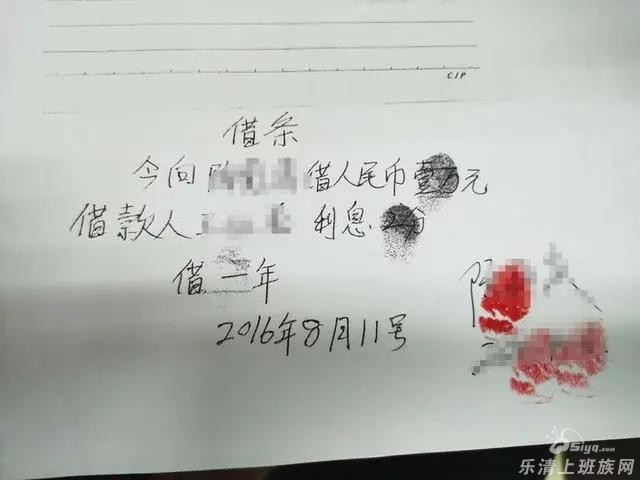 CJP
借条
今向 借人民币壹万元
借款人 利息2分
借一年
2016年8月11号
Siyq.com
乐清上班族网